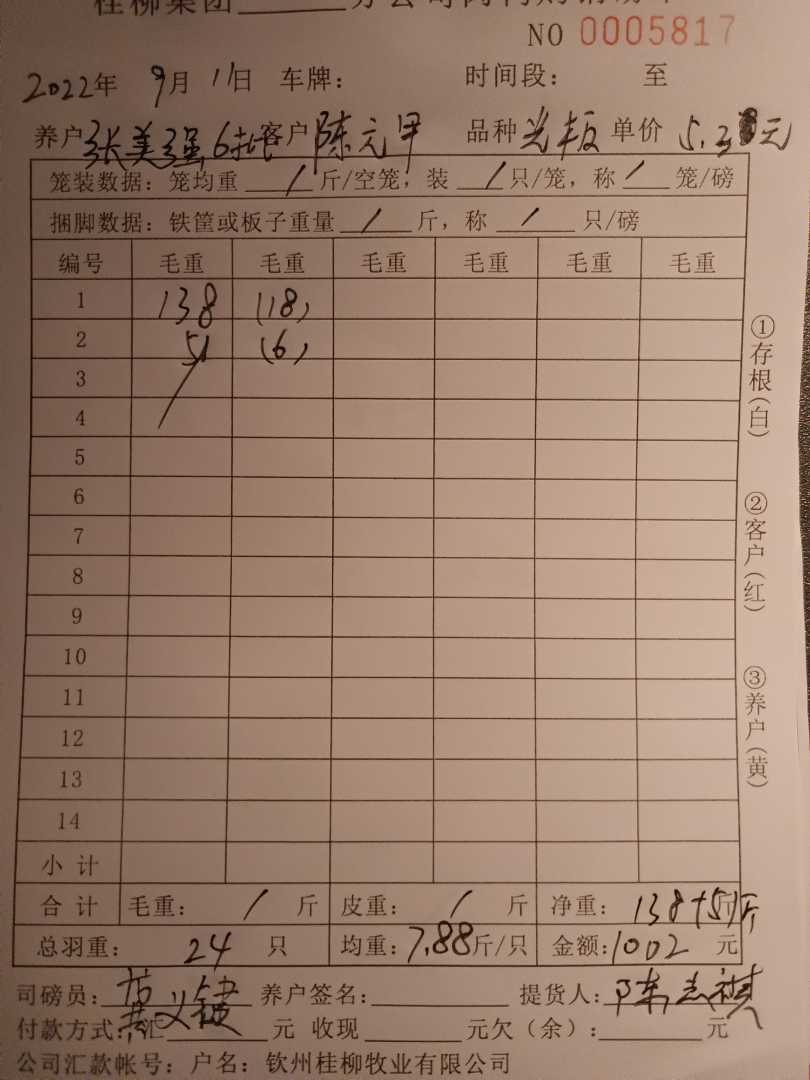 桂柳集团______分公司
NO 0005817
2022年 9月 11日 车牌: 时间段: 至
养户 张美强6批 客户 陈元甲 品种 单价 5.3 元
笼装数据: 笼均重 / 斤/空笼, 装 / 只/笼, 称 / 笼/磅
捆脚数据: 铁筐或板子重量 / 斤, 称 / 只/磅
编号 毛重 毛重 毛重 毛重 毛重 毛重
1 138 (18)
2 51 (6)
3
4
5
6
7
8
9
10
11
12
13
14
小计
合计 毛重: / 斤 皮重: / 斤 净重: 138+51斤
总羽重: 24 只 均重: 7.88斤/只 金额: 1002 元
司磅员: 养户签名: 提货人: 陈志祺
付款方式: 汇 元 收现 元欠（余）: 元
公司汇款帐号: 户名: 钦州桂柳牧业有限公司
①存根(白)
②客户(红)
③养户(黄)